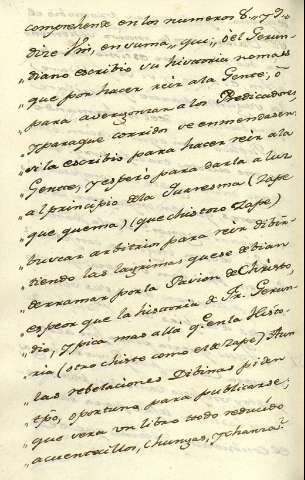 comprehende en los numeros 8 y 9.
dize Vm, en suma, que, el Gerun-
„ diano escribio su historia no mas
„ que por hacer reir a la Gente, ô
„ para avergonzar a los Predicadores,
„ y para que corridos se enmendasen
„ si la escribio para hacer reir a la
„ Gente, y esperó para darla a luz
„ al principio de la Quaresma (Zape
„ que quema) (que chistoso Zape)
„ buscar arbitrio para reir dibir-
„ tiendo las lagrimas que se debian
„ derramar por la Pasion de Christo,
„ es peor que la historia de Fr. Gerun-
„ dio, y pica mas alla q. en la Histo-
„ ria (otro chiste como el de Zape) Aun
„ las rebelaciones Dibinas piden
„ tpō, oportuno para publicarse,
„ que sera un libro todo reducido
„ a cuentecillos, chunzas, y chanzas